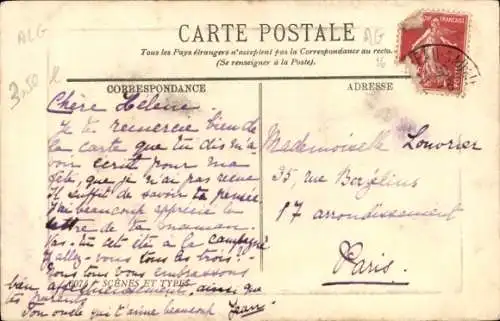 ALG
AG
3.50
CARTE POSTALE
Tous les Pays étrangers n'acceptent pas la Correspondance au recto
(Se renseigner à la Poste).
CORRESPONDANCE
ADRESSE
Chère Hélène
Je te remercie bien de
la carte que tu dis m'a
voir écrit pour ma
fête, que je n'ai pas reçue
Il suffit de savoir ta pensée
J'ai beaucoup apprécié la
lettre de ta maman
Vas-tu cet été à la campagne
Y allez-vous tous les trois?
Nous tous vous embrassons
bien affectueusement, ainsi que
tes parents
Ton oncle qui t'aime beaucoup Jean
SCÈNES ET TYPES
Mademoiselle Louvrier
35, rue Berzélius
17 arrondissement
Paris.